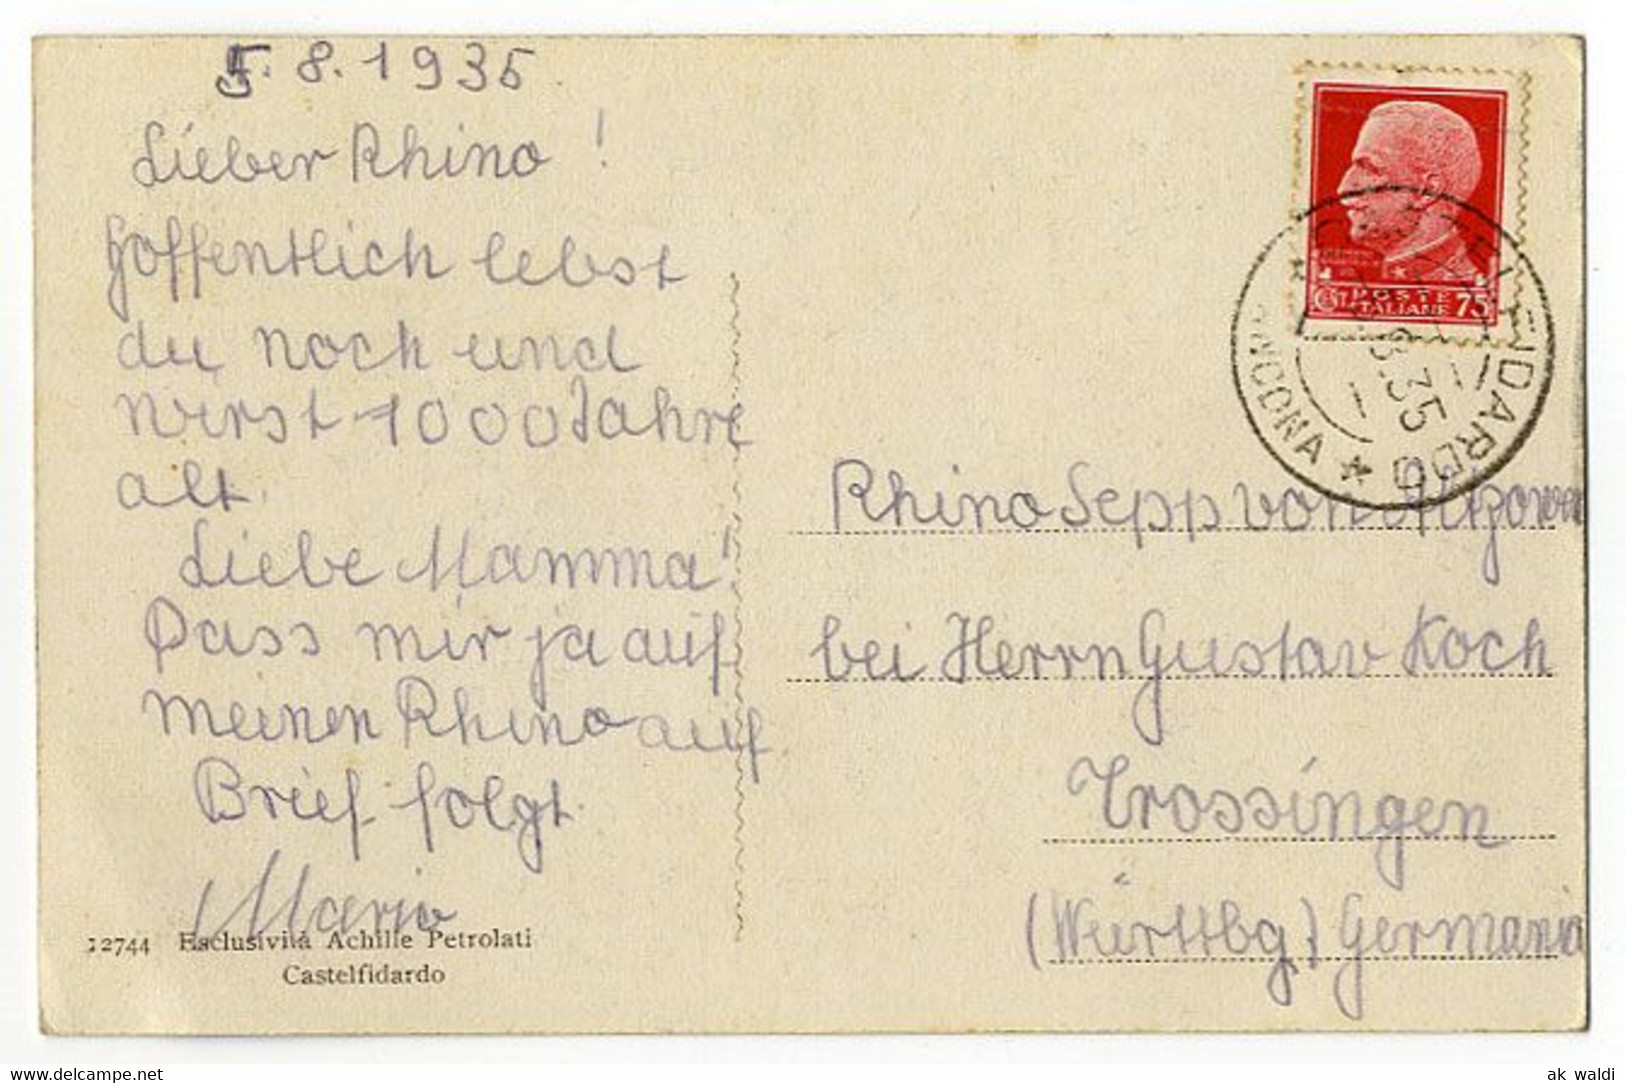 5.8.1935
Lieber Rhino!
Hoffentlich lebst
du noch und
wirst 1000 Jahre
alt.
Liebe Mamma!
Pass mir ja auf
meinen Rhino auf
Brief folgt.
Mario
12744 Esclusività Achille Petrolati
Castelfidardo
CENT POSTE 75
ITALIANE
CASTELFIDARDO
8.35
ANCONA
Rhino Sepp von
bei Herrn Gustav Koch
Trossingen
(Württbg) Germania
ak waldi
www.delcampe.net